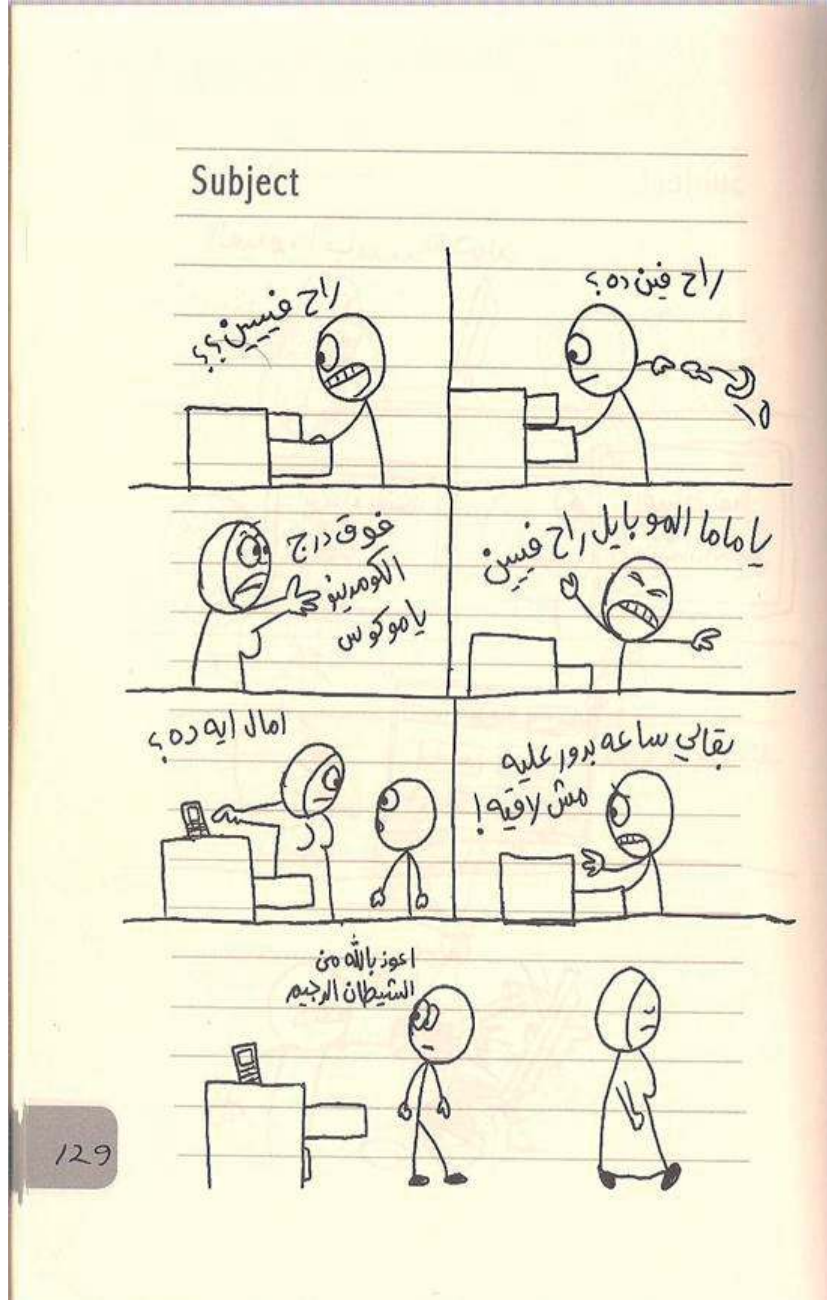 Subject
راح فين ده؟
راح فييين؟؟
يا ماما الموبايل راح فيين
فوق درج
الكومدينو
يا موكوس
بقالي ساعه بدور عليه
مش لاقيه!
امال ايه ده؟
اعوذ بالله من
الشيطان الرجيم
129